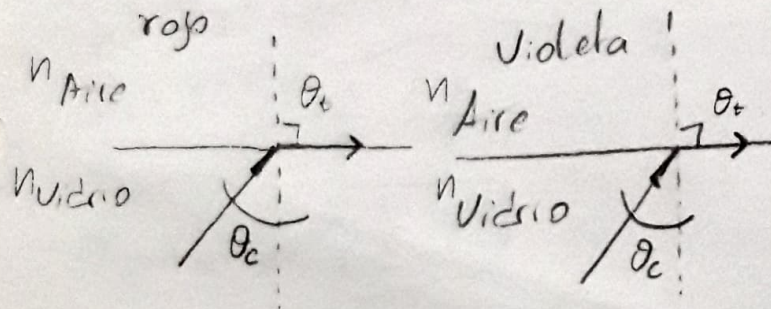 rojo
n Aire
θt
n Vidrio
θc
Violeta
n Aire
θt
n Vidrio
θc